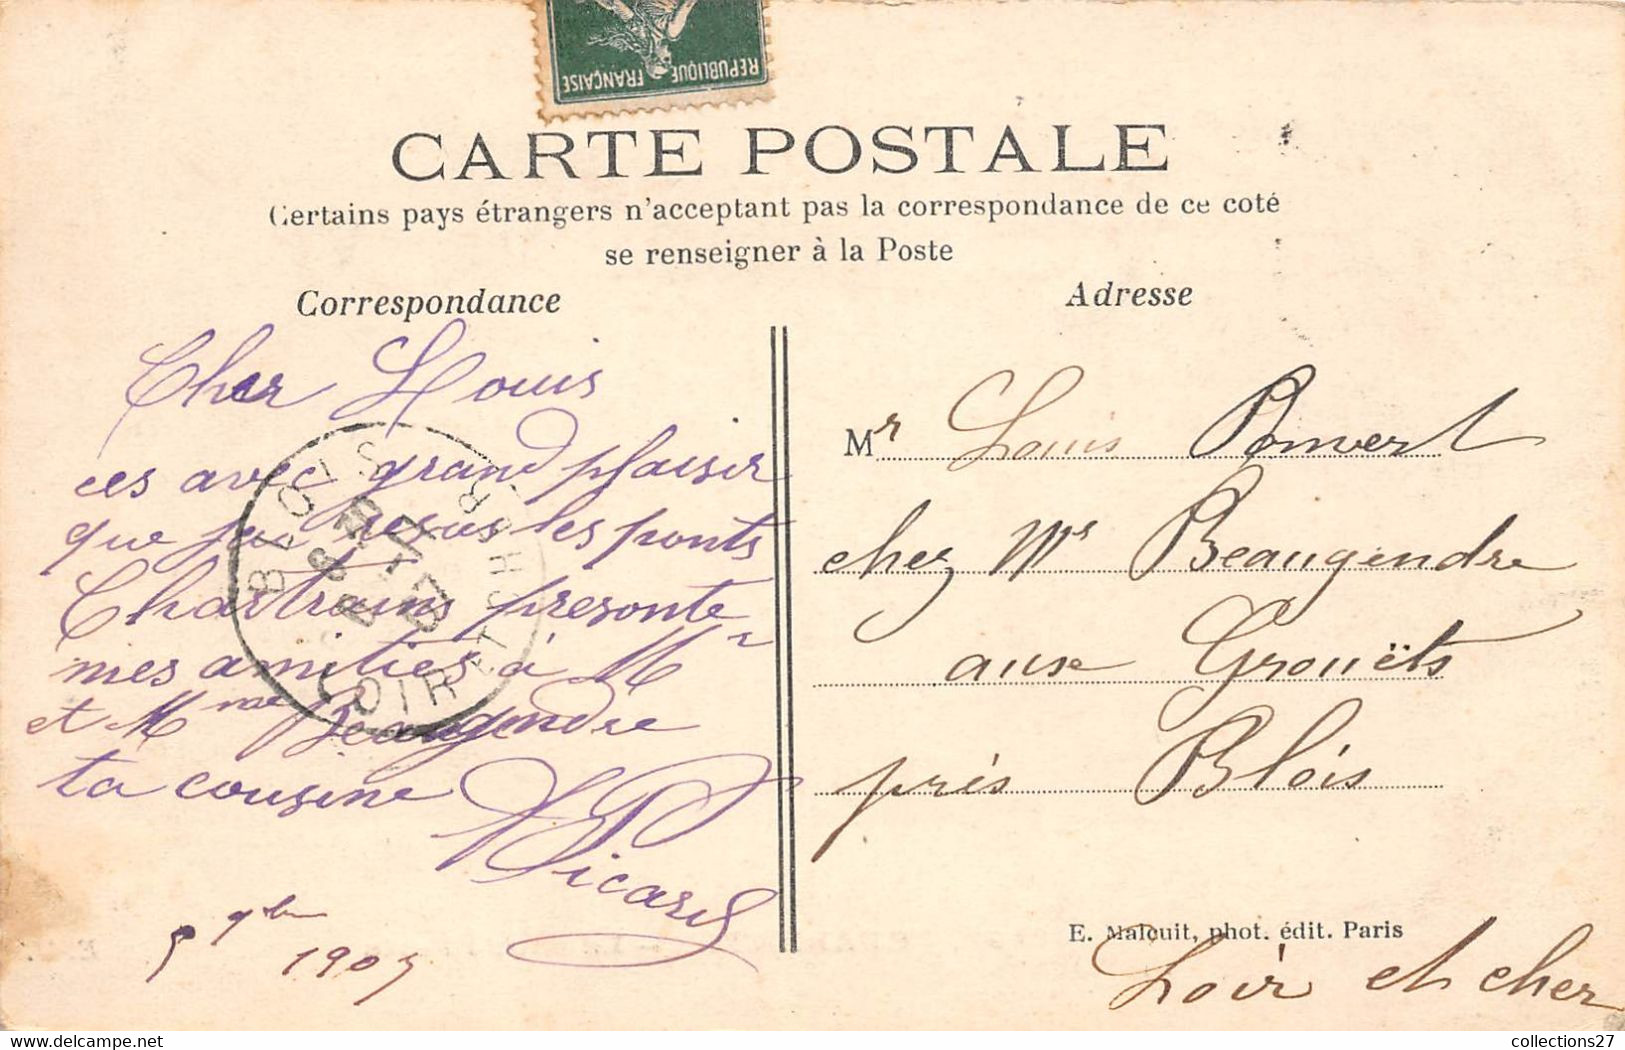 REPUBLIQUE FRANÇAISE
CARTE POSTALE
Certains pays étrangers n'acceptant pas la correspondance de ce coté
se renseigner à la Poste
Correspondance
Cher Louis
ces avec grand plaisir
que jai resus les ponts
Chartrains presente
mes amitiés à Mr
et Mme Beaugendre
ta cousine
Picard
5 9bre
BLOIS
LOIR ET CHER
Adresse
Mr Louis
chez Mr Beaugendre
aux Grouëts
près Blois
E. Malcuit, phot. édit. Paris
Loir et cher
collections27